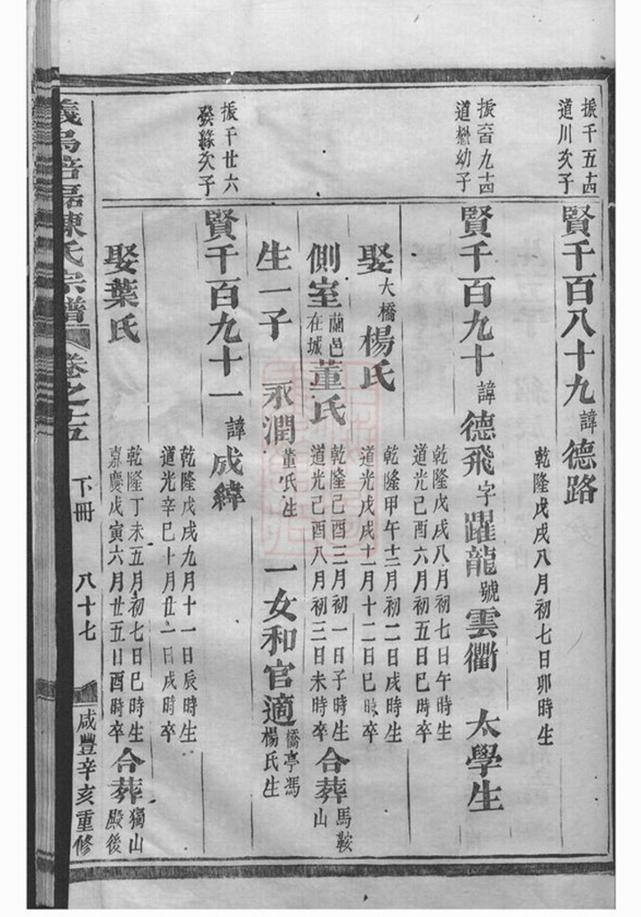 振千五十四
道川次子
賢千百八十九 諱德路
乾隆戊戌八月初七日卯時生
振六百九十四
道懋幼子
賢千百九十 諱德飛 字躍龍 號雲衢 太學生
乾隆戊戌八月初七日午時生
道光己酉六月初五日巳時卒
娶大橋楊氏
乾隆甲午十二月初二日戌時生
道光戊戌十一月十二日巳時卒
側室蘭邑在城董氏
乾隆己酉三月初一日子時生
道光己酉八月初三日未時卒
合葬馬鞍山
生一子 承潤董氏生 一女和官適橋亭馮楊氏生
振千廿六
發緣次子
賢千百九十一 諱成緯
乾隆戊戌九月十一日辰時生
道光辛巳十月廿一日戌時卒
娶葉氏
乾隆丁未五月初七日巳時生
嘉慶戊寅六月廿五日酉時卒
合葬獨山殿後
義烏倍磊陳氏宗譜 卷之十五 下冊 八十七 咸豐辛亥重修